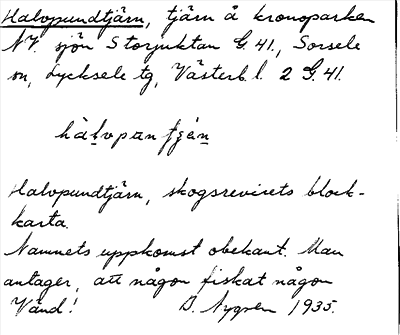 Halvpundtjärn, tjärn å kronoparken
NV. sjön Storjuktan G. 41., Sorsele
sn, Lycksele tg, Västerb. l. 2 G. 41.
hàlvpan tjä́n
Halvpundtjärn, skogsrevirets block-
karta.
Namnets uppkomst obekant. Man
antager, att någon fiskat någon
Vänd! D. Nygren 1935.